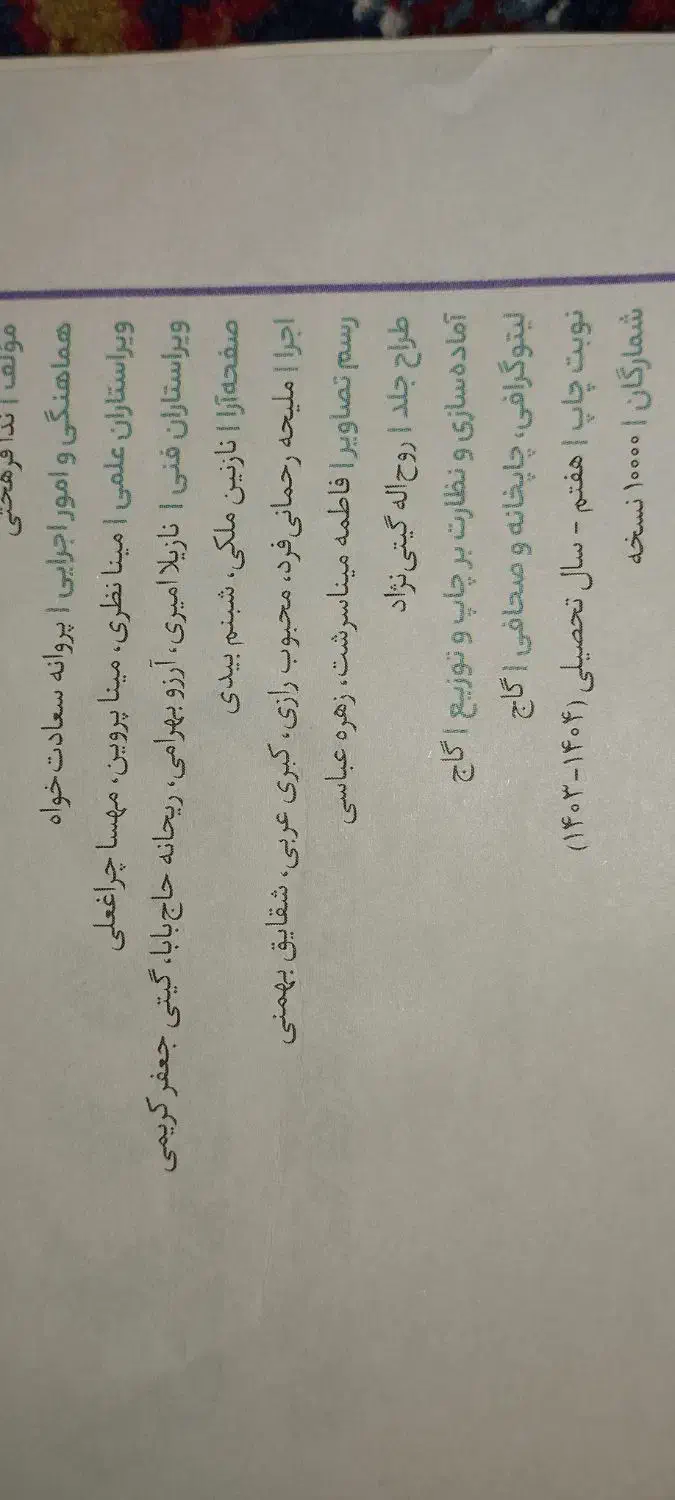 مؤلف | ندا فرهختی
هماهنگی و امور اجرایی | پروانه سعادت خواه
ویراستاران علمی | مینا نظری، مینا پروین، مهسا چراغعلی
ویراستاران فنی | نازیلا امیری، آرزو بهرامی، ریحانه حاج بابا، گیتی جعفر کریمی
صفحه‌آرا | نازنین ملکی، شبنم بیدی
اجرا | ملیحه رحمانی فرد، محبوب رازی، کبری عربی، شقایق بهمنی
رسم تصاویر | فاطمه میناسرشت، زهره عباسی
طراح جلد | روح اله گیتی نژاد
آماده‌سازی و نظارت بر چاپ و توزیع | گاج
لیتوگرافی، چاپخانه و صحافی | گاج
نوبت چاپ | هفتم - سال تحصیلی (۱۴۰۴-۱۴۰۳)
شمارگان | ۱۰۰۰۰ نسخه